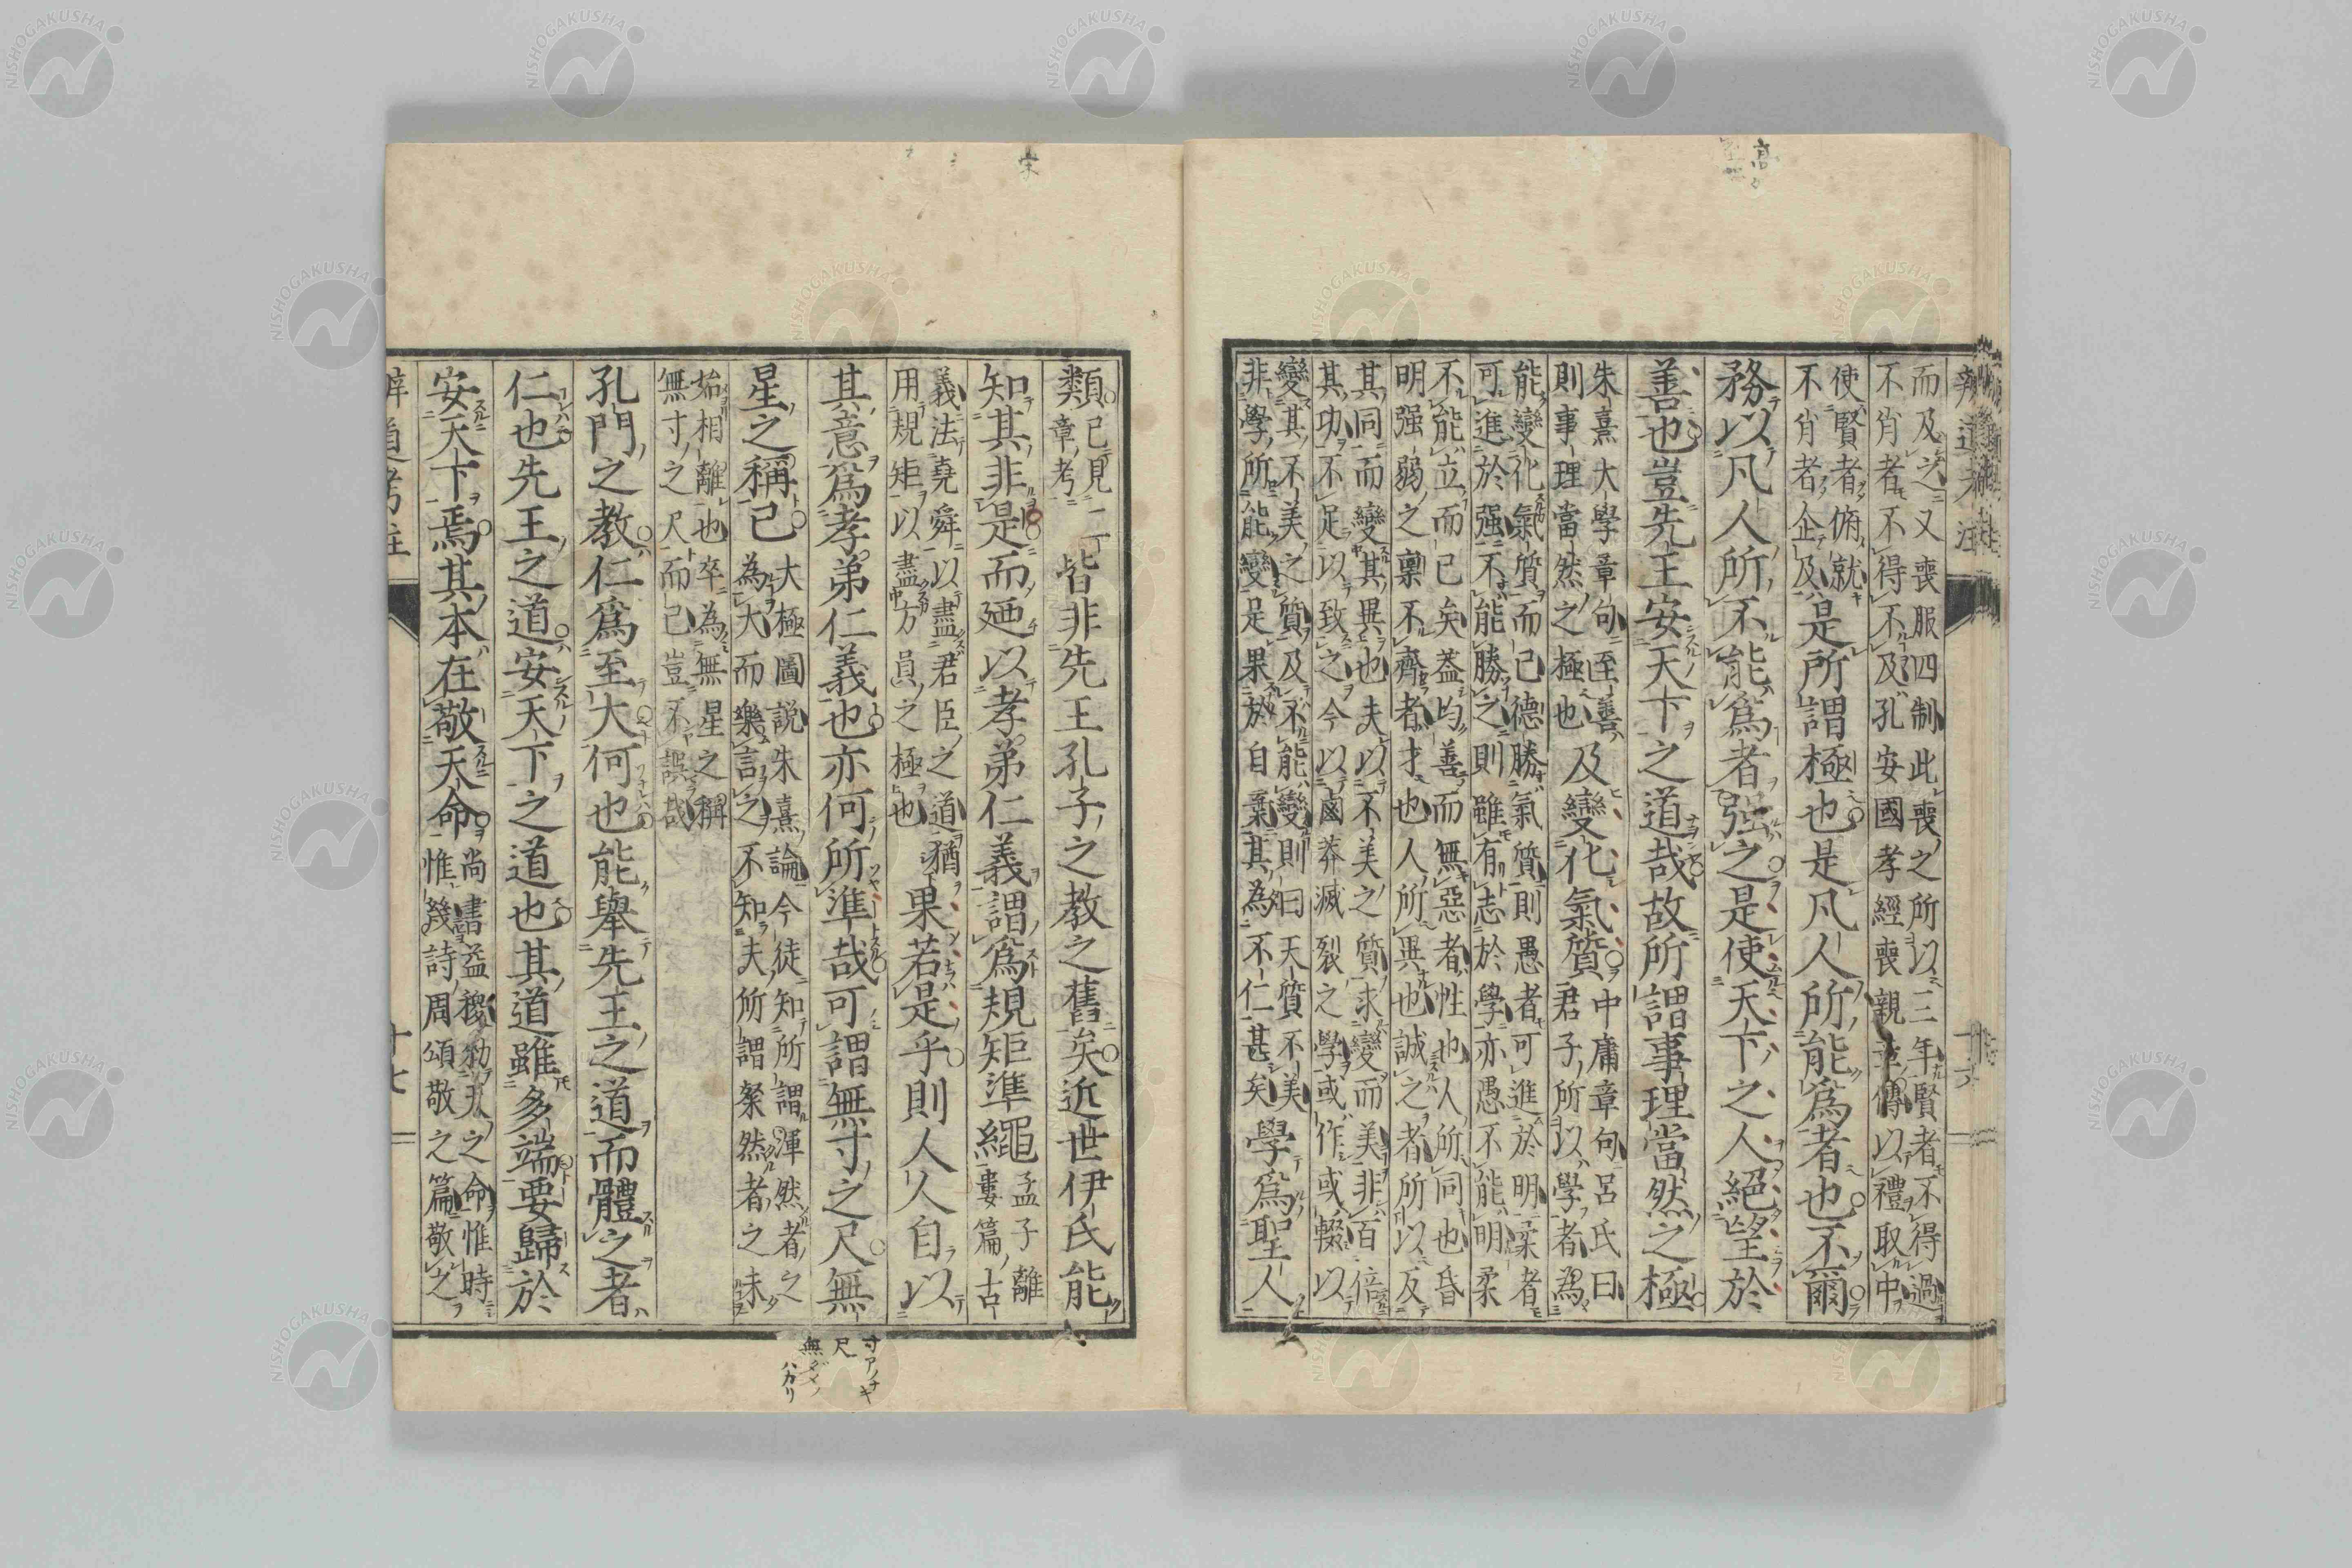 而及之又喪服四制此喪之所以三年賢者不得過
不肖者不得不及孔安國孝經喪親章傳以禮取中
使賢者俯就
不肖者企及是所謂極也是凡人所能爲者也不爾
務以凡人所不能爲者强之是使天下之人絕望於
善也豈先王安天下之道哉故所謂事理當然之極
朱熹大學章句至善
則事理當然之極也及變化氣質中庸章句呂氏曰
君子所以學者爲
能變化氣質而已德勝氣質則愚者可進於明柔者
可進於强不能勝之則雖有志於學亦愚不能明柔
不能立而已矣葢均善而無惡者性也人所同也昏
明强弱之稟不齊者才也人所異也誠之者所以反
其同而變其異也夫以不美之質求變而美非百倍
其功不足以致之今以鹵莽滅裂之學或作或輟以
變其不美之質及不能變則曰天質不美
非學所能變是果於自棄其為不仁甚矣學爲聖人
類已見二
章考皆非先王孔子之教之舊矣近世伊氏能
知其非是而廼以孝弟仁義謂爲規矩準繩孟子離
婁篇古
義法堯舜以盡君臣之道猶
用規矩以盡方員之極也果若是乎則人人自以
其意爲孝弟仁義也亦何所準哉可謂無寸之尺無
星之稱已大極圖說朱熹論今徒知所謂渾然者之
為大而樂言之不知夫所謂粲然者之未
始相離也卒為無星之稱
無寸之尺而已豈不誤哉
孔門之教仁爲至大何也能舉先王之道而體之者
仁也先王之道安天下之道也其道雖多端要歸於
安天下焉其本在敬天命尚書益稷勑天之命惟時
惟幾詩周頌敬之篇敬之
宋
寸アノナキ
尺
無
ハカリ
十七